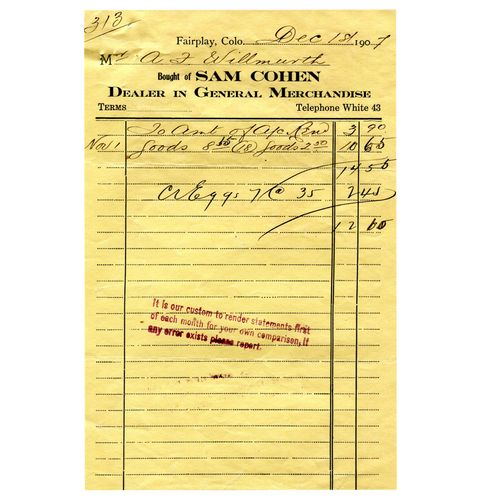 313
Fairplay, Colo. Dec 1st 1907
Mr A. F. Willmarth
Bought of SAM COHEN
DEALER IN GENERAL MERCHANDISE
TERMS Telephone White 43
To Amt of A/c Rend 3 90
Nov 1 Goods 8 55 (18) Goods 2 50 10 65
14 55
Cr Eggs 7 @ 35 2 45
12 60
It is our custom to render statements first
of each month for your own comparison, if
any error exists please report.